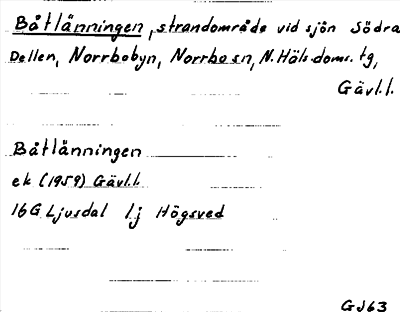 Båtlänningen, strandområde vid sjön Södra
Dellen, Norrbobyn, Norrbo sn, N. Häls. doms. tg,
Gävl.l.
Båtlänningen
ek (1959) Gävl.l.
16G Ljusdal 1j Högsved
GJ63